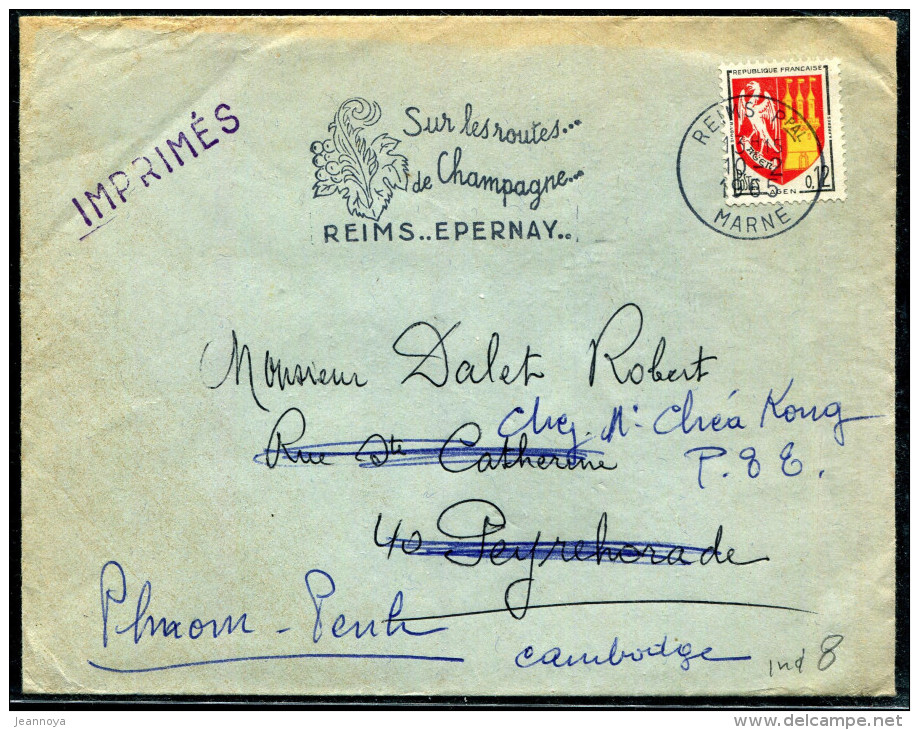 IMPRIMÉS
Sur les routes...
de Champagne...
REIMS..EPERNAY..
REPUBLIQUE FRANÇAISE
AGEN
0,12
REIMS PPAL
10-2
1965
MARNE
Monsieur Dalet Robert
Chez Mr Chéa Kong
Rue Ste Catherine
P.E E.
40 Peyrehorade
Phnom-Penh
Cambodge
ind 8
jeannoya
www.delcampe.net